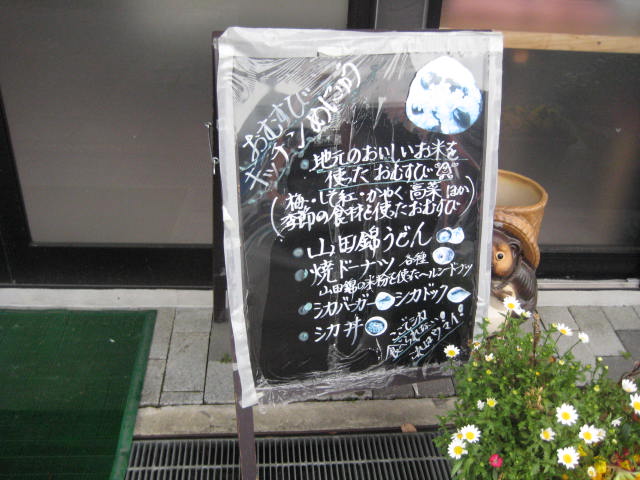 おむすび
キッチンめにゅう
地元のおいしいお米を
使ったおむすび
(梅・しそ・紅・かやく 高菜 ほか
季節の食材を使ったおむすび)
山田錦うどん
焼ドーナツ 各種
山田錦の米粉を使ったヘルシードーナツ
シカバーガー シカドック
シカ丼
ここでシカ
食べられない!
これはウマい!